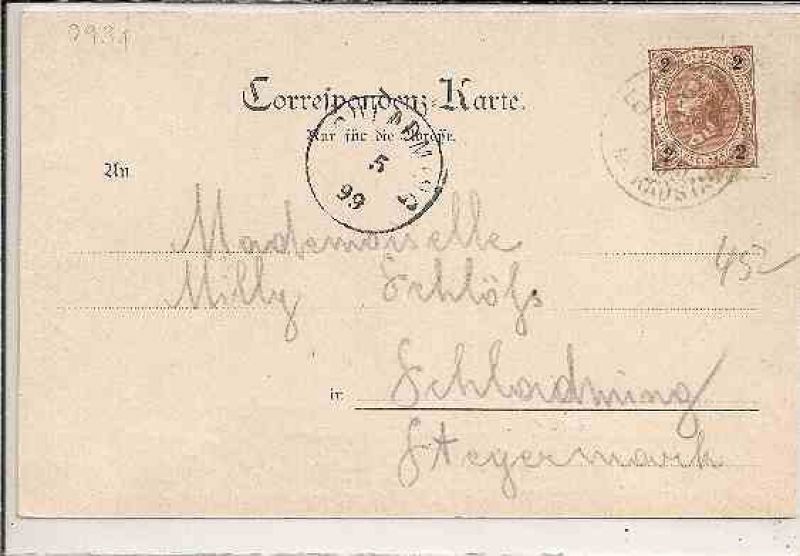 Correspondenz-Karte.
Nur für die Adresse.
2 2
2 2
SCHLADMING
5
99
An
Mademoiselle
452
Milly Schlößs
in Schladming
Steyermark